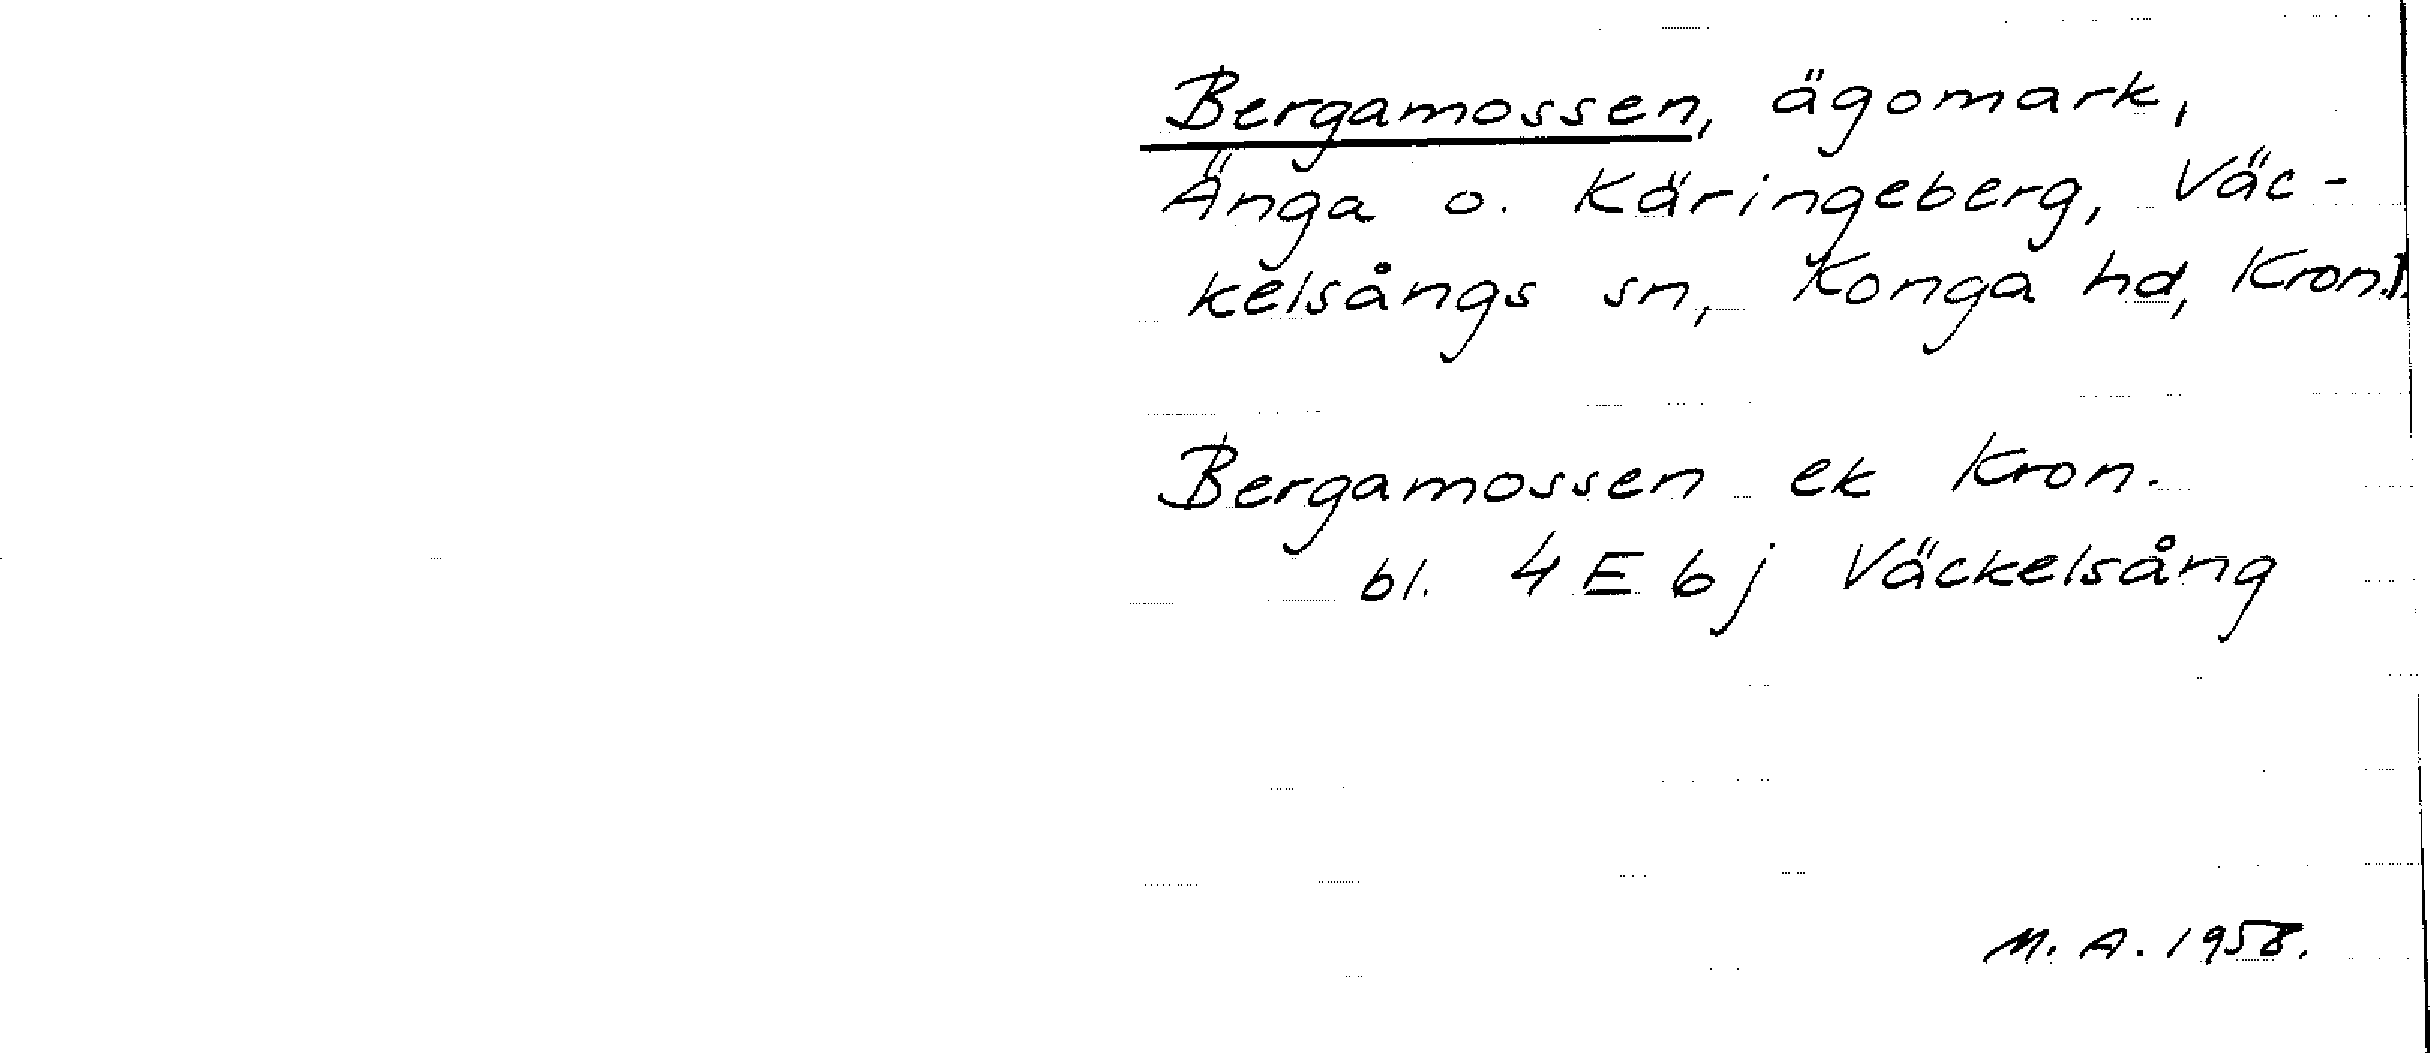 Bergamossen, ägomark,
Änga o. Käringeberg, Väc-
kelsångs sn, Konga hd, Kron.l.
Bergamossen ek Kron.
bl. 4E6j Väckelsång
M.A. 1958.